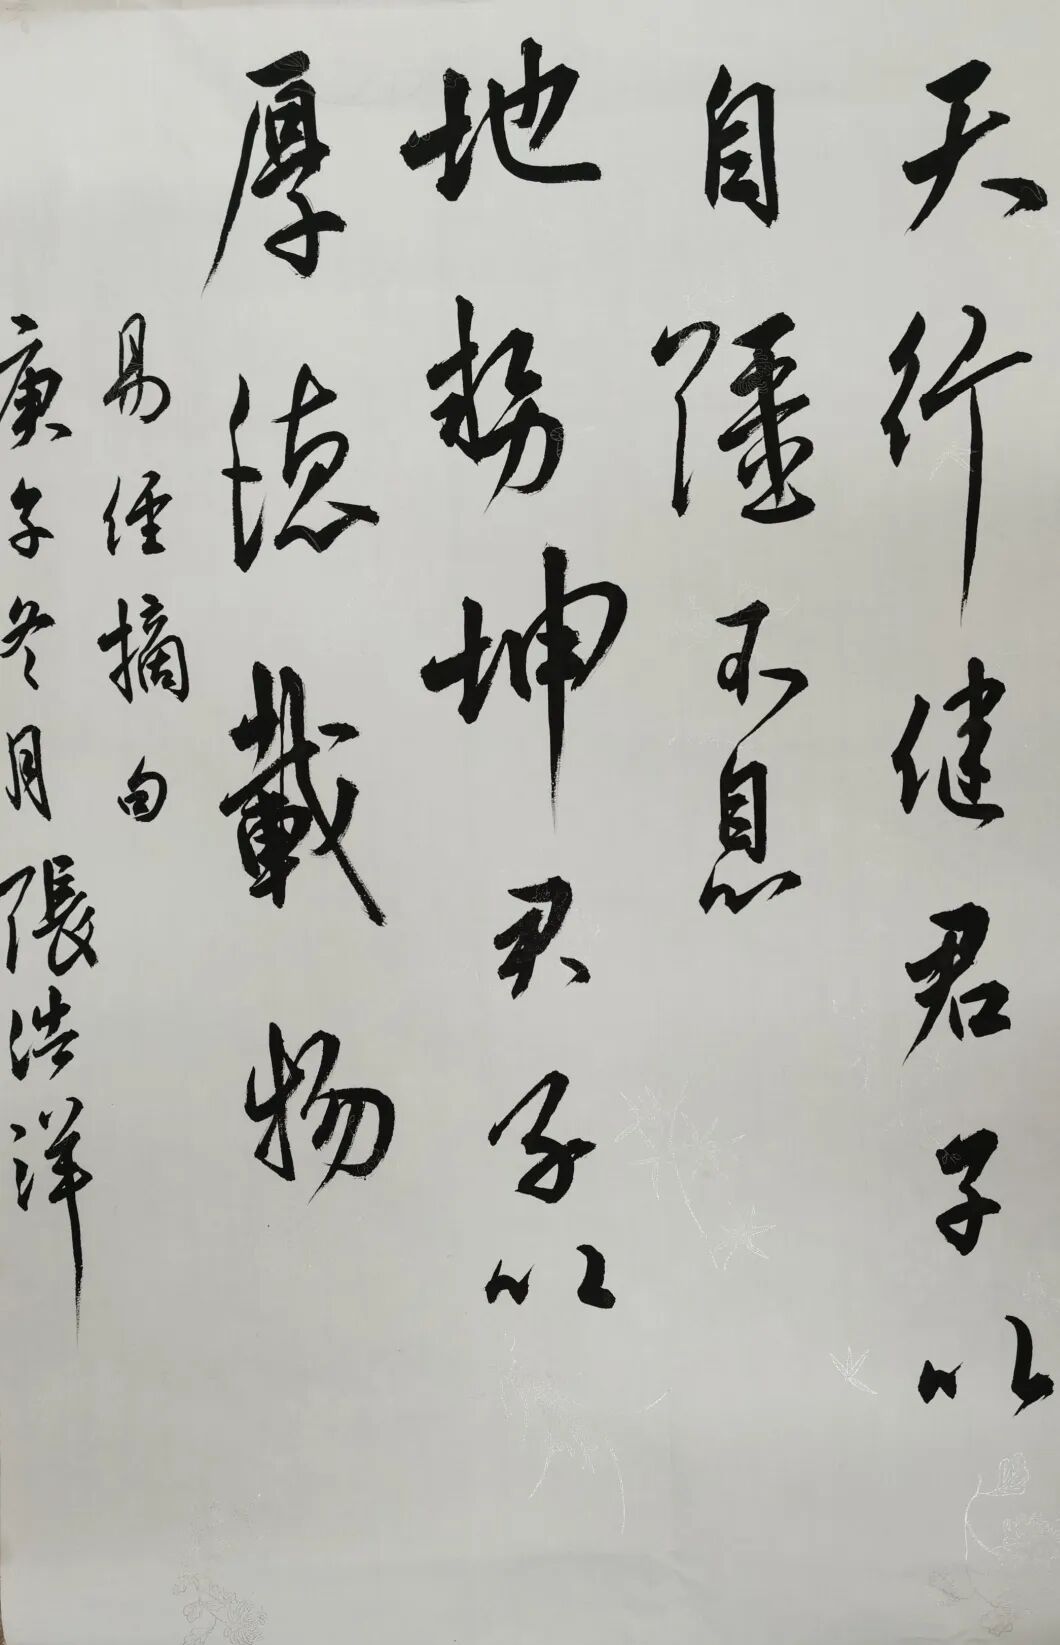 天行健君子以
自彊不息
地势坤君子以
厚德載物
易经摘句
庚子冬月張浩洋